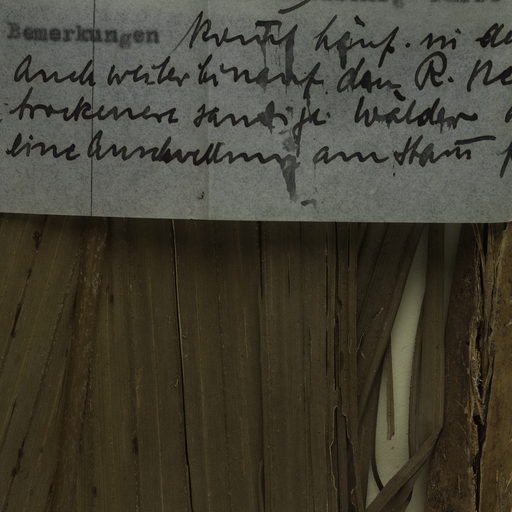 Bemerkungen Kommt häuf. in de
Auch weiter hinauf den R. Ne
trockenere sandige Wälder
eine Anschwellung am Stam